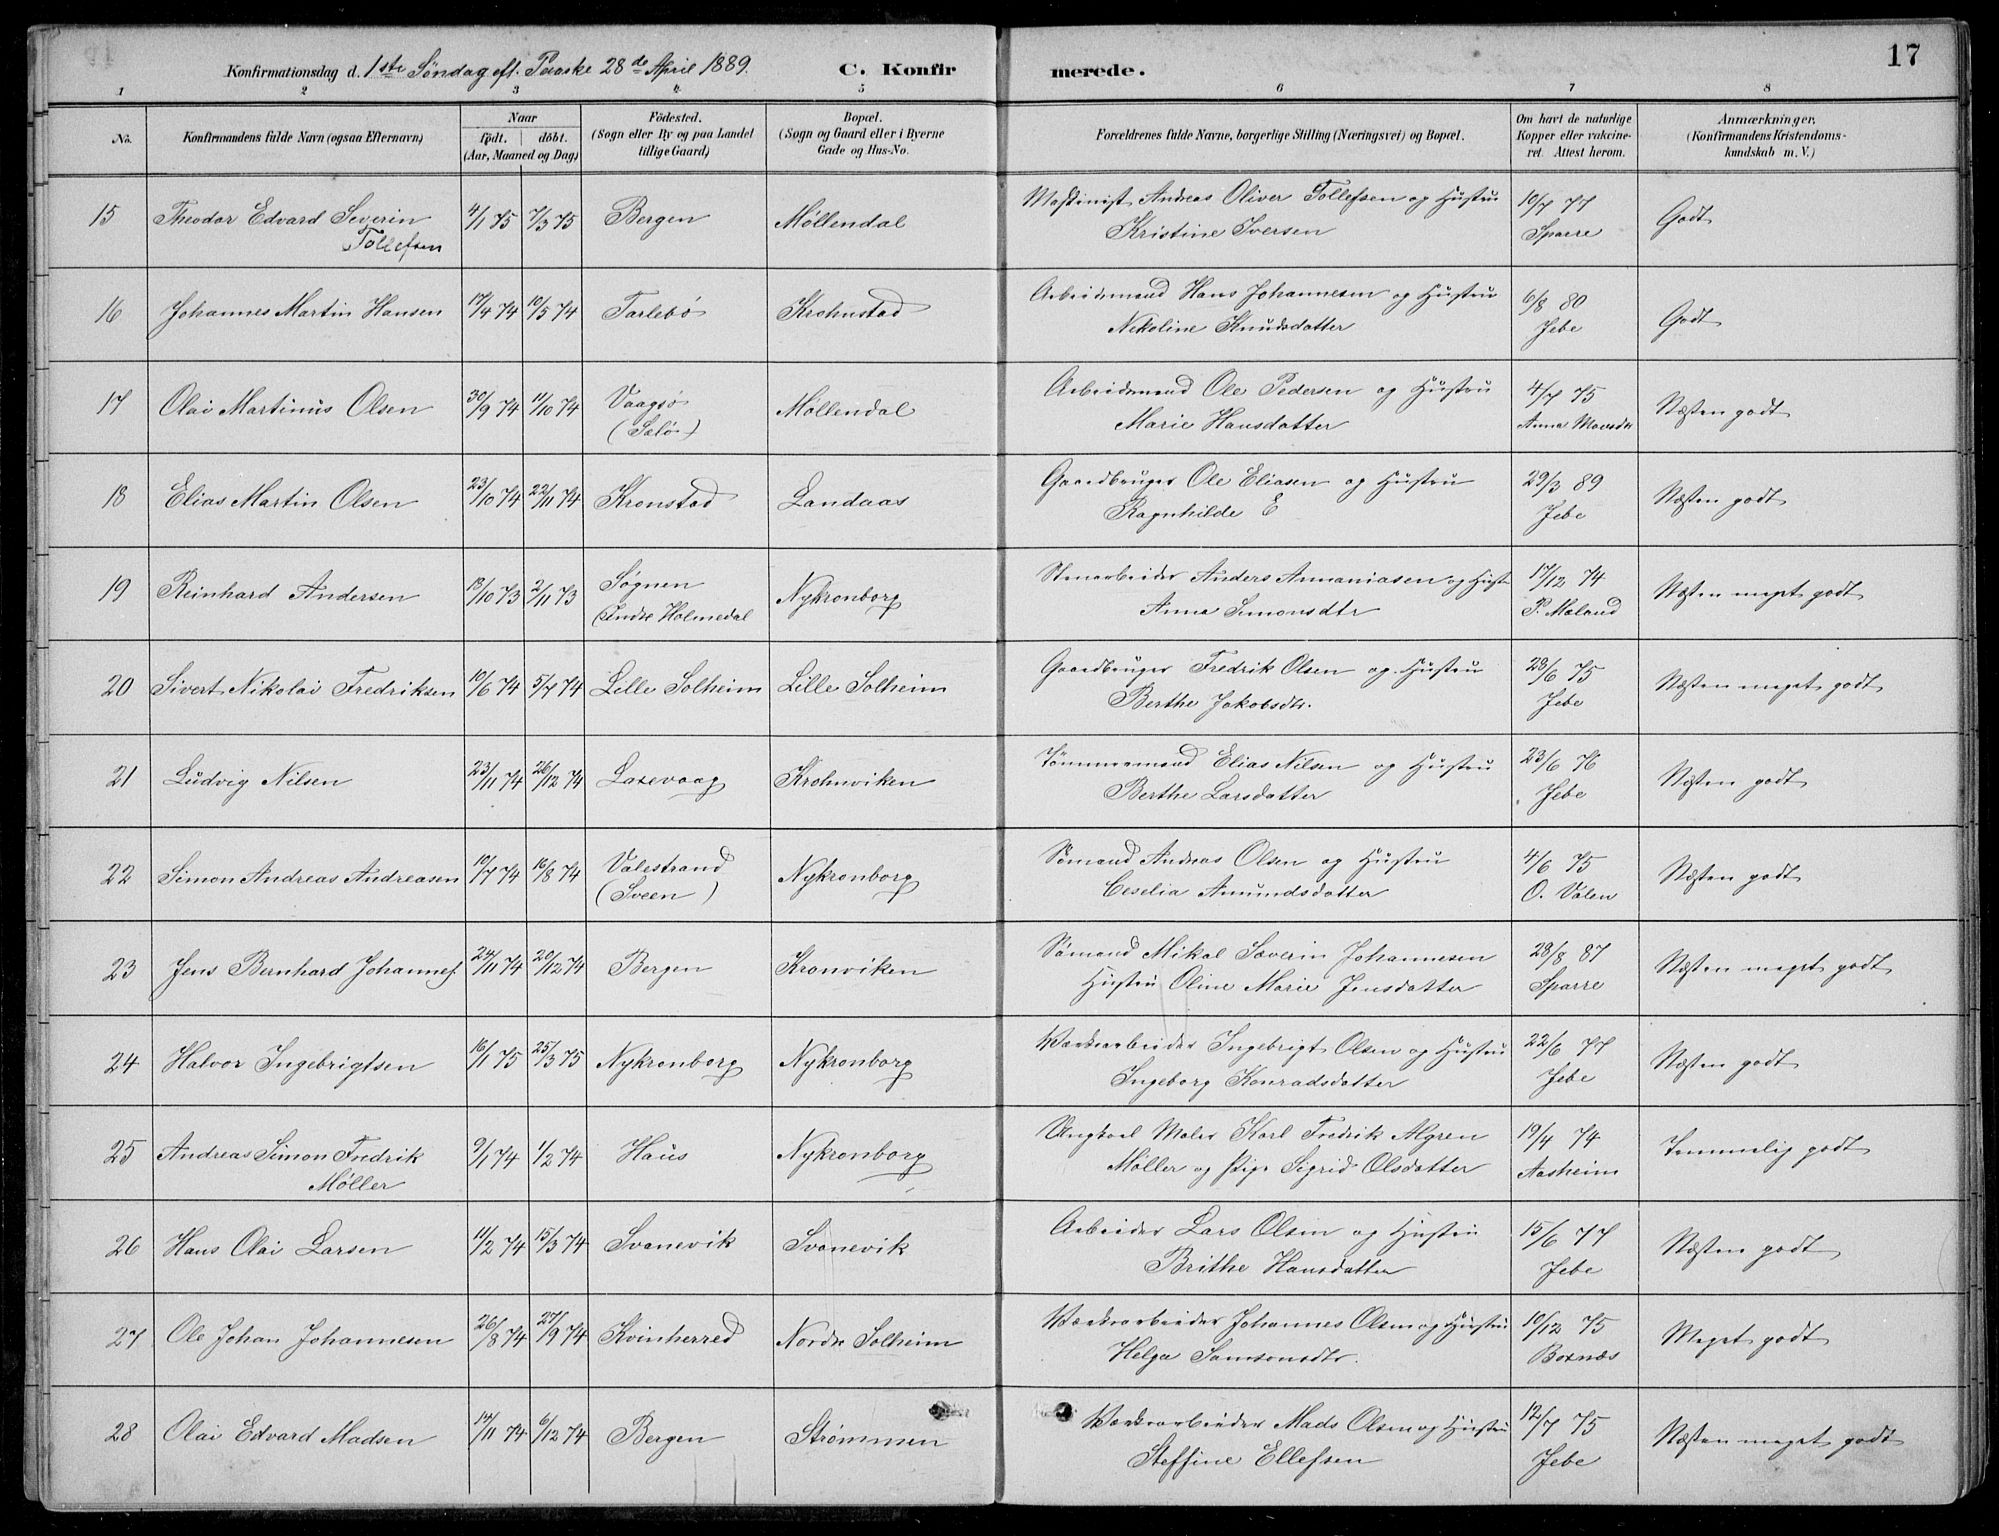 17
Konfirmationsdag d. 1ste Søndag eft. Paaske 28de April 1889. C. Konfirmerede.
1 2 3 4 5 6 7 8
No. Konfirmandens fulde Navn (ogsaa Efternavn) Naar født. døbt. (Aar, Maaned og Dag) Födested. (Sogn eller By og paa Landet tillige Gaard) Bopæl. (Sogn og Gaard eller i Byerne Gade og Hus-No. Forældrenes fulde Navne, borgerlige Stilling (Næringsvei) og Bopæl. Om havt de naturlige Kopper eller vakcineret. Attest herom. Anmærkninger. (Konfirmandens Kristendomskundskab m. V.)
15 Theodor Edvard Severin Tollefsen 4/1 75 7/3 75 Bergen Møllendal Maskinist Andreas Oliver Tollefsen og Hustru Kristine Iversen 10/7 77 Sparre Godt
16 Johannes Martin Hansen 17/4 74 10/5 74 Tarlebø Krohnstad Arbeidsmand Hans Johannesen og Hustru Nikoline Knudsdatter 6/8 80 Jebe Godt
17 Olai Martinus Olsen 30/9 74 11/10 74 Vaagsø (Sælø) Møllendal Arbeidsmand Ole Pedersen og Hustru Marie Hansdatter 4/7 75 Anna Næsten godt
18 Elias Martin Olsen 23/10 74 22/11 74 Kronstad Landaas Gaardbruger Ole Eliasen og Hustru Ragnhilde E 29/3 89 Jebe Næsten godt
19 Reinhard Andersen 13/10 73 2/11 73 Søgnen (Indre Holmedal Nykronborg Stenarbeider Anders Annaniasen og Hust Anna Simonsdtr 17/12 74 P. Mæland Næsten meget godt
20 Sivert Nikolai Fredriksen 10/6 74 5/7 74 Lille Solheim Lille Solheim Gaardbruger Fredrik Olsen og Hustru Berthe Jakobsdtr. 28/6 75 Jebe Næsten meget godt
21 Ludvig Nilsen 23/11 74 26/12 74 Laxevaag Krohnviken Tømmermand Elias Nilsen og Hustru Berthe Larsdatter 23/6 76 Jebe Næsten godt
22 Simon Andreas Andreasen 10/7 74 16/8 74 Valestrand (Sveen) Nykronborg Sømand Andreas Olsen og Hustru Ceselia Amundsdatter 4/6 75 O. Valen Næsten godt
23 Jens Bernhard Johannes. 24/11 74 20/12 74 Bergen Kronviken Sømand Mikal Sæverin Johannesen Hustru Oline Marie Jensdatter 28/8 87 Sparre Næsten meget godt
24 Halvor Ingebrigtsen 16/1 75 25/3 75 Nykronborg Nykronborg Værksarbeider Ingebrigt Olsen og Hustru Ingeborg Konradsdatter 22/6 77 Jebe Næsten godt
25 Andreas Simon Fredrik Møller 9/1 74 1/2 74 Haus Nykronborg Ungkarl Maler Karl Fredrik Algren Møller og Pige Sigrid Olsdatter 19/4 74 Aasheim Temmelig godt
26 Hans Olai Larsen 11/2 74 15/3 74 Svanevik Svanevik Arbeider Lars Olsen og Hustru Brithe Hansdatter 15/6 77 Jebe Næsten godt
27 Ole Johan Johannesen 26/8 74 27/9 74 Kvinherred Nordre Solheim Værksarbeider Johannes Olsen og Hustru Helga Samsonsdtr. 10/12 75 Boxnæs Meget godt
28 Olai Edvard Madsen 14/11 74 6/12 74 Bergen Strømmen Værksarbeider Mads Olsen og Hustru Steffine Ellefsen 12/7 75 Jebe Næsten meget godt